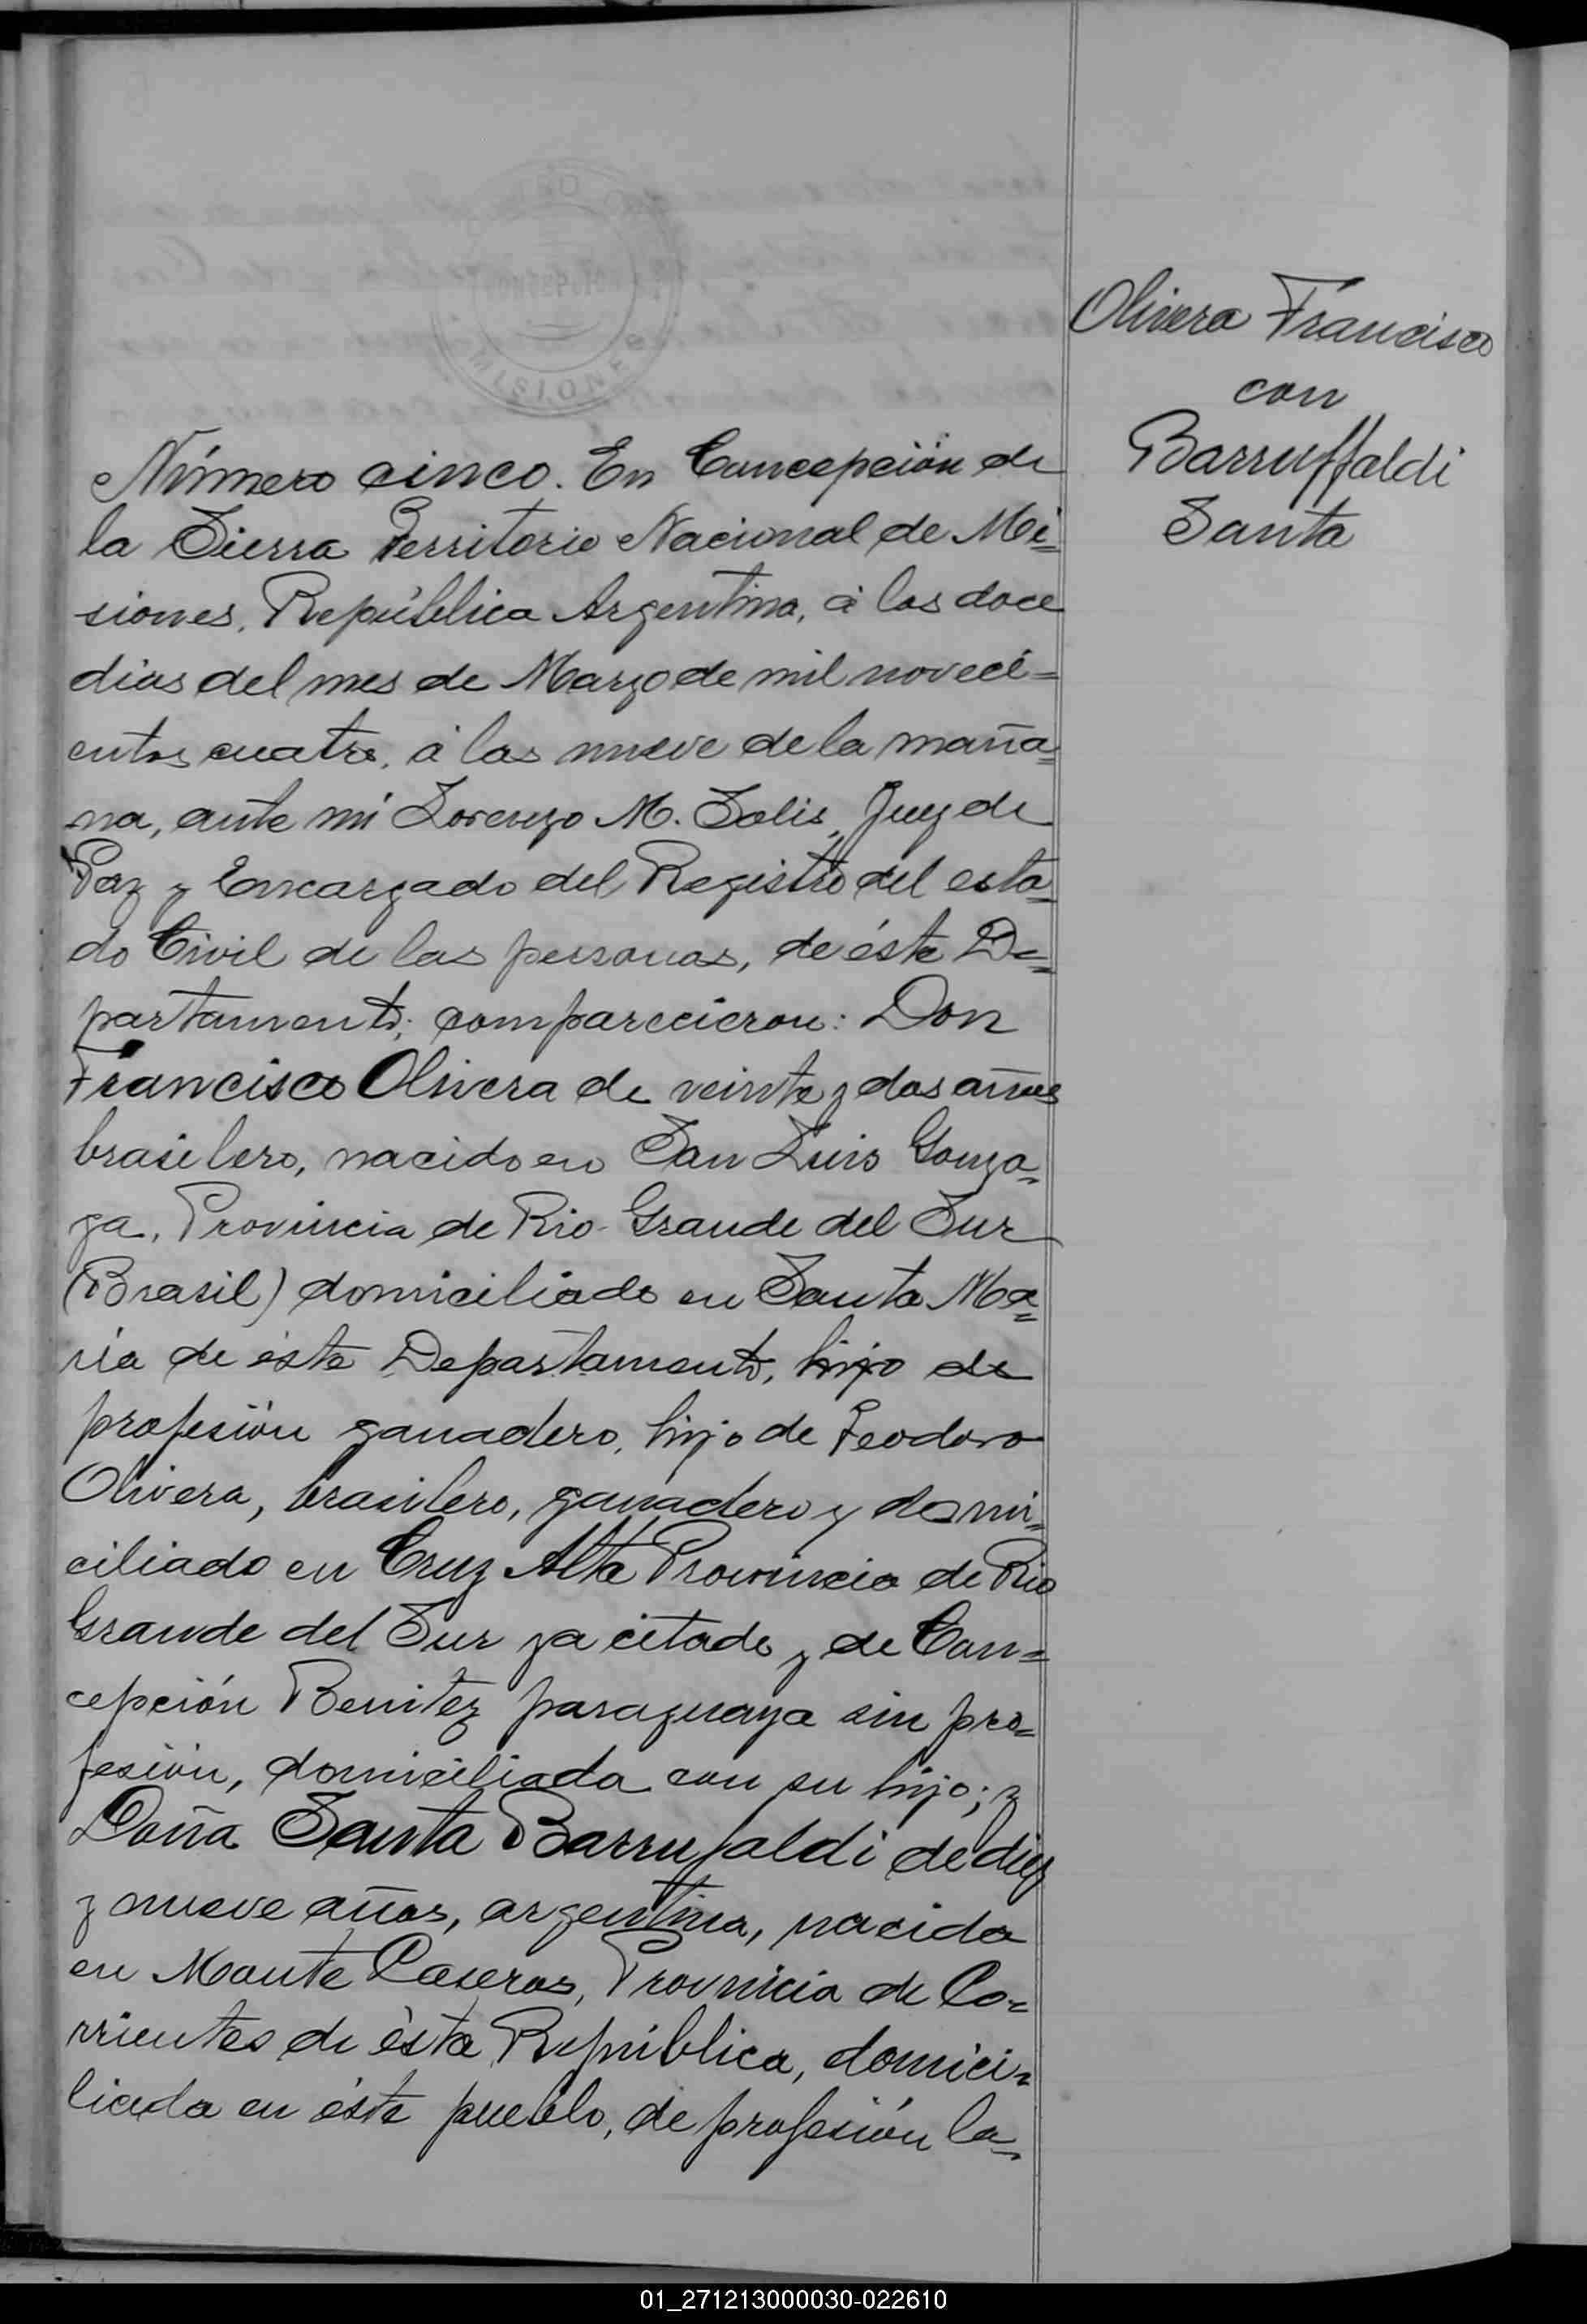 Olivera Francisco
con
Barruffaldi
Santa
MISIONES
Número cinco. En Concepción de
la Sierra Territorio Nacional de Mi=
siones, República Argentina, á los doce
dias del mes de Marzo de mil noveci=
entos cuatro, á las nueve de la maña=
na, ante mí Lorenzo M. Solis, Juez de
Paz y Encargado del Registro del esta=
do Civil de las personas, de éste De=
partamento; comparecieron: Don
Francisco Olivera de veinte y dos años
brasilero, nacido en San Luis Gonza=
ga, Provincia de Rio Grande del Sur
(Brasil) domiciliado en Santa Ma=
ría de éste Departamento, hijo de
profesión ganadero, hijo de Teodoro
Olivera, brasilero, ganadero y domi=
ciliado en Cruz Alta Provincia de Rio
Grande del Sur ya citado y de Con=
cepción Benitez paraguaya sin pro=
fesión, domiciliada con su hijo; y
Doña Santa Barrufaldi de diez
y nueve años, argentina, nacida
en Monte Caseros, Provincia de Co=
rrientes de ésta República, domici=
liada en éste pueblo, de profesión la=
01_271213000030-022610